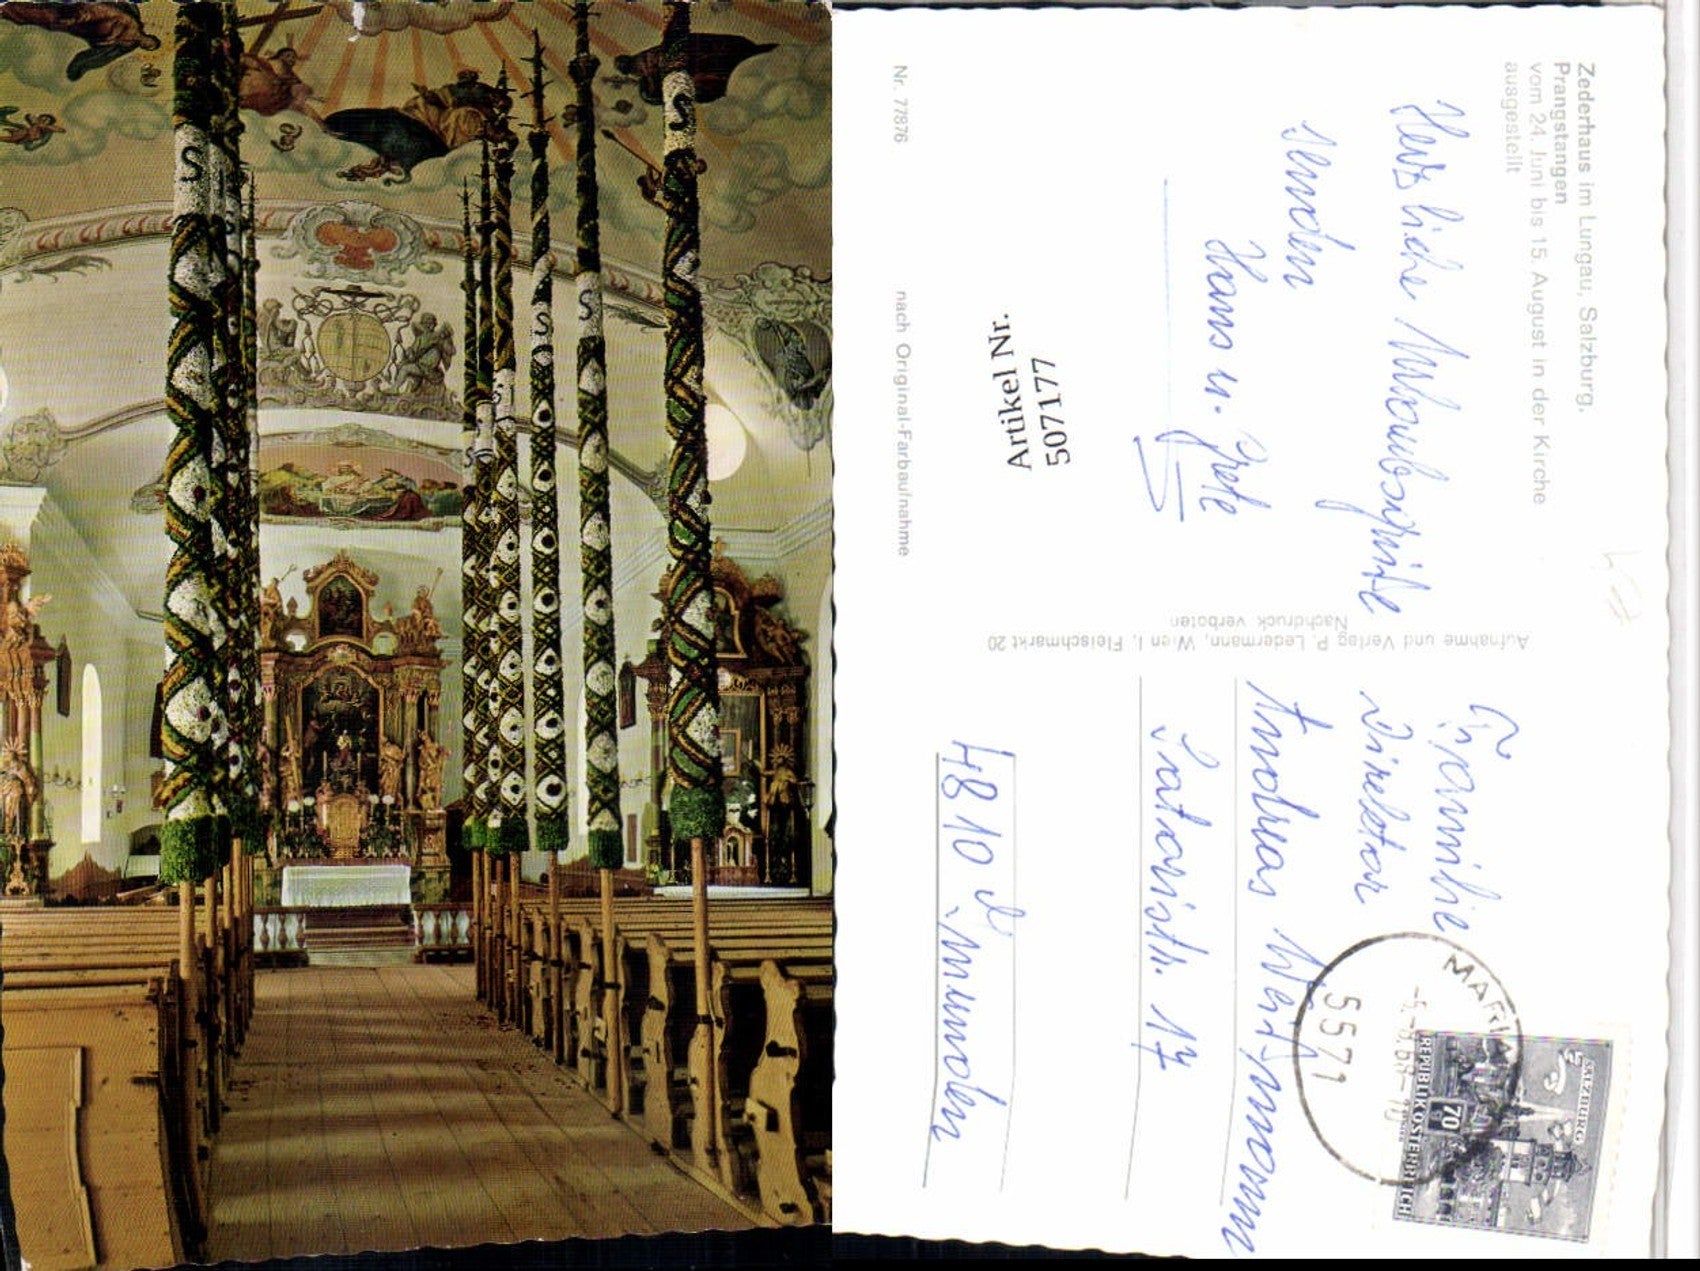 Zederhaus im Lungau, Salzburg,
Prangstangen
vom 24. Juni bis 15. August in der Kirche
ausgestellt
Herzliche Urlaubsgrüße
senden
Hans u. Grete
Artikel Nr.
507177
Nr. 77876
nach Original-Farbaufnahme
Aufnahme und Verlag P. Ledermann, Wien I, Fleischmarkt 20
Nachdruck verboten
Familie
Direktor
Andreas
17
4810 Gmunden
MARIA
5571
SALZBURG
70
REPUBLIK OSTERREICH
S
S
S
S